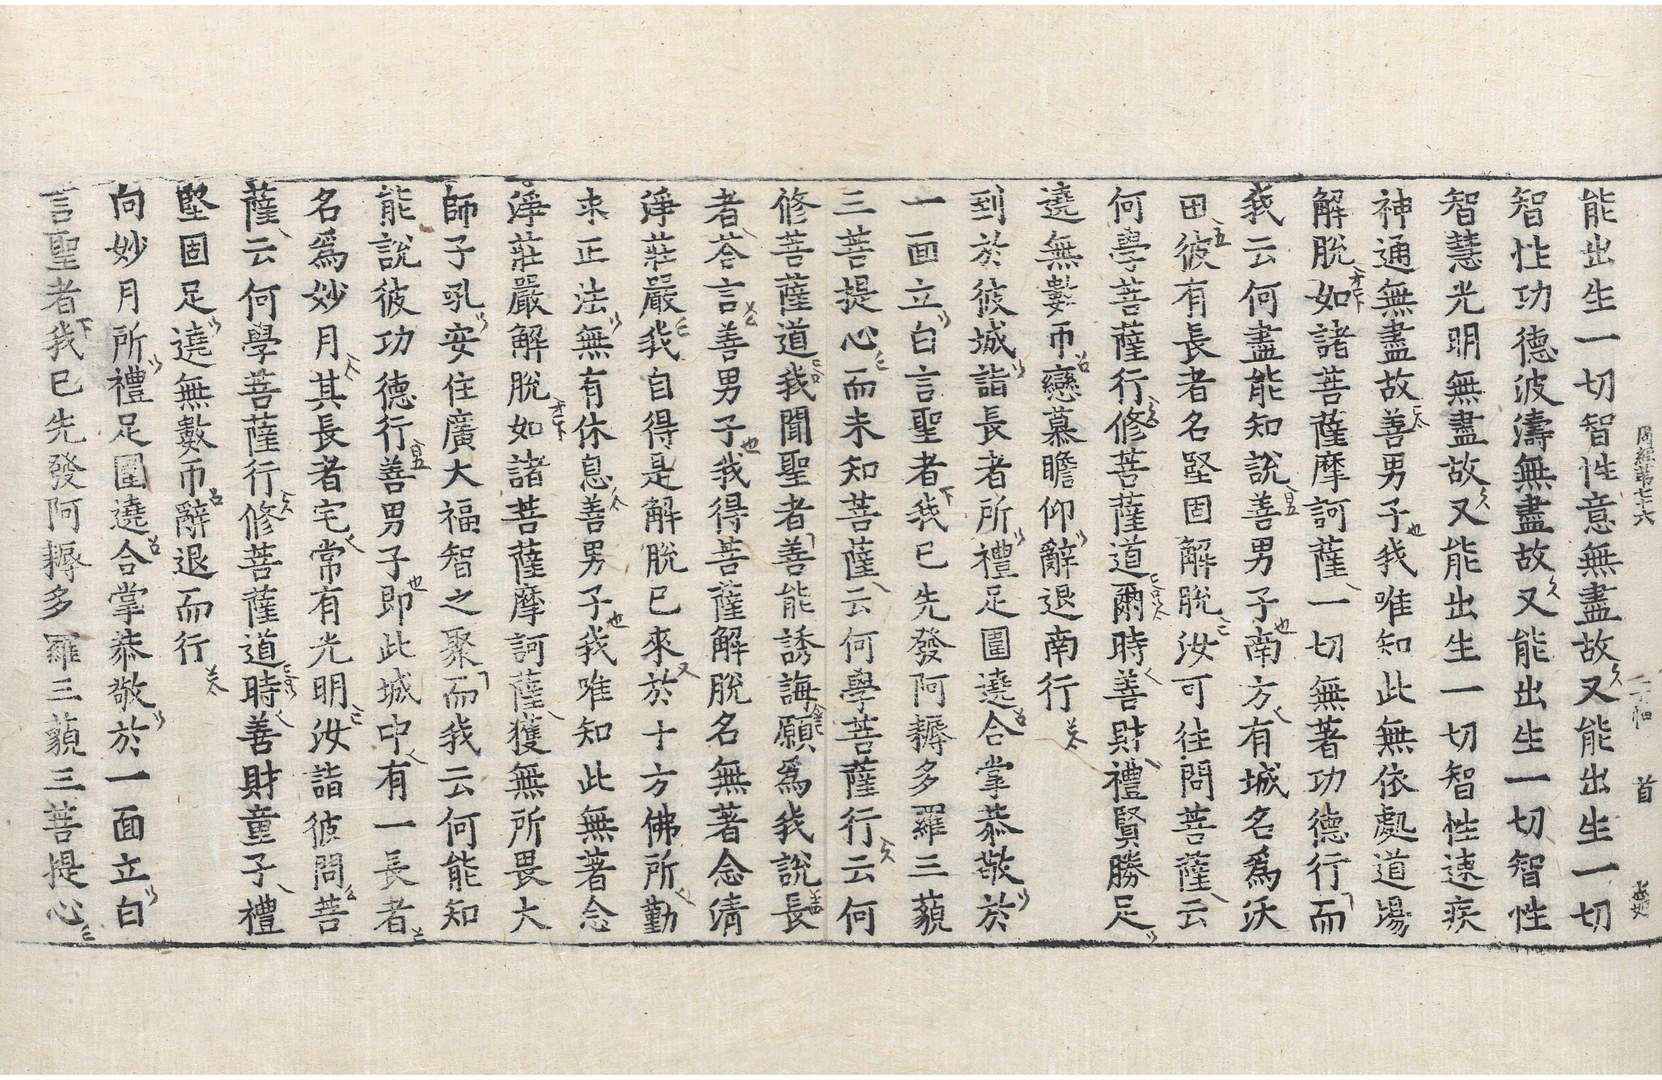 周經第七十六
首
能出生一切智性意無盡故又能出生一切
智性功德波濤無盡故又能出生一切智性
智慧光明無盡故又能出生一切智性速疾
神通無盡故善男子我唯知此無依處道場
解脫如諸菩薩摩訶薩一切無著功德行而
我云何盡能知說善男子南方有城名爲沃
田彼有長者名堅固解脫汝可往問菩薩云
何學菩薩行修菩薩道爾時善財禮賢勝足
遶無數帀戀慕瞻仰辭退南行
到於彼城詣長者所禮足圍遶合掌恭敬於
一面立白言聖者我已先發阿耨多羅三藐
三菩提心而未知菩薩云何學菩薩行云何
修菩薩道我聞聖者善能誘誨願爲我說長
者荅言善男子我得菩薩解脫名無著念清
淨莊嚴我自得是解脫已來於十方佛所勤
求正法無有休息善男子我唯知此無著念
淨莊嚴解脫如諸菩薩摩訶薩獲無所畏大
師子吼安住廣大福智之聚而我云何能知
能說彼功德行善男子即此城中有一長者
名爲妙月其長者宅常有光明汝詣彼問菩
薩云何學菩薩行修菩薩道時善財童子禮
堅固足遶無數帀辭退而行
向妙月所禮足圍遶合掌恭敬於一面立白
言聖者我已先發阿耨多羅三藐三菩提心